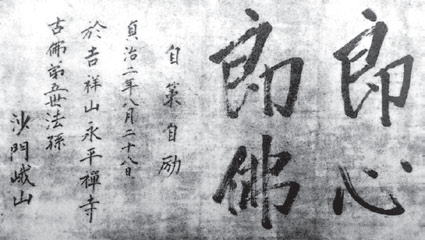 即心
即佛
自策自励
貞治二年八月二十八日
於吉祥山永平禅寺
古佛第五世法孫
沙門峨山